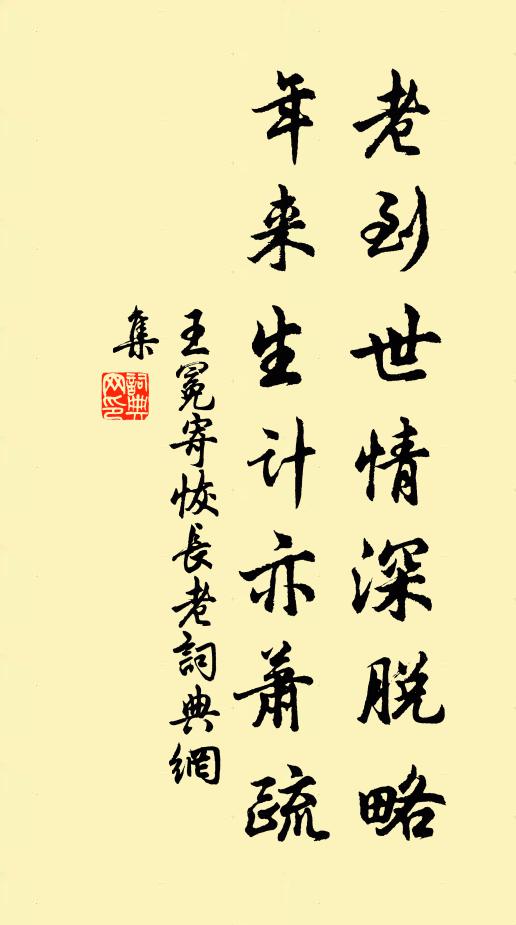 老到世情深脱略
年来生计亦萧疏
王冕寄恢長老詞典網
集
詞典
网印